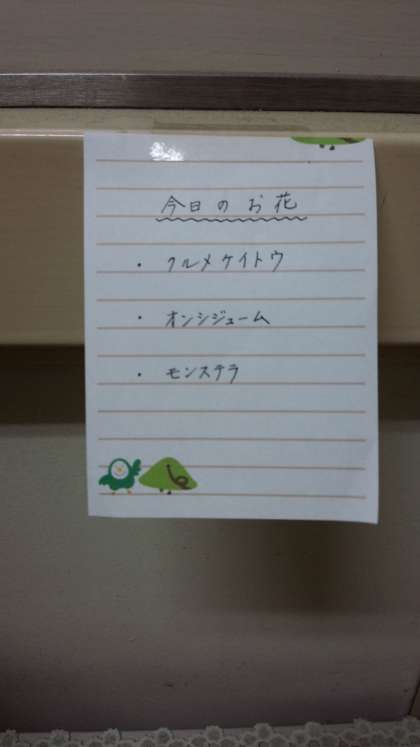 今日のお花
・クルメケイトウ
・オンシジューム
・モンステラ